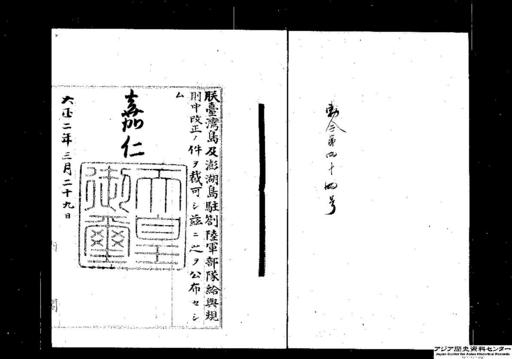 勅令第四十四号
朕臺灣島及澎湖島駐劄陸軍部隊給與規
則中改正ノ件ヲ裁可シ茲ニ之ヲ公布セシ
ム
嘉仁
天皇御璽
大正二年三月二十九日
アジア歴史資料センター
Japan Center for Asian Historical Records